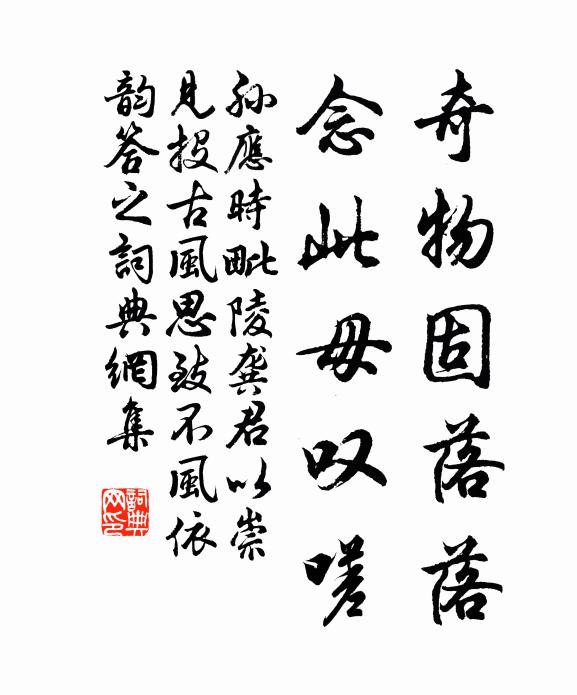 奇物固落落
念此毋叹嗟
孙應時毗陵龔君以崇
見投古風思致不風依
韵答之詞典網集
詞典网印